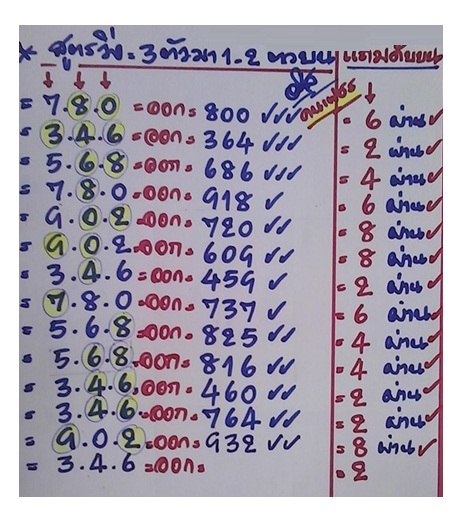 * สูตรวิ่ง = 3 ตัวมา 1-2 ตัวบน แถมดับบน
คนเพชร
= 7.8.0 = ออก = 800 ✓✓✓ = 6 ผ่าน ✓
= 3.4.6 = ออก = 364 ✓✓✓ = 2 ผ่าน ✓
= 5.6.8 = ออก = 686 ✓✓✓ = 4 ผ่าน ✓
= 7.8.0 = ออก = 918 ✓ = 6 ผ่าน ✓
= 9.0.2 = ออก = 720 ✓✓ = 8 ผ่าน ✓
= 9.0.2 = ออก = 609 ✓✓ = 8 ผ่าน ✓
= 3.4.6 = ออก = 459 ✓ = 2 ผ่าน ✓
= 7.8.0 = ออก = 737 ✓ = 6 ผ่าน ✓
= 5.6.8 = ออก = 825 ✓✓ = 4 ผ่าน ✓
= 5.6.8 = ออก = 816 ✓✓ = 4 ผ่าน ✓
= 3.4.6 = ออก = 460 ✓✓ = 2 ผ่าน ✓
= 3.4.6 = ออก = 764 ✓✓ = 2 ผ่าน ✓
= 9.0.2 = ออก = 932 ✓✓ = 8 ผ่าน ✓
= 3.4.6 = ออก = = 2